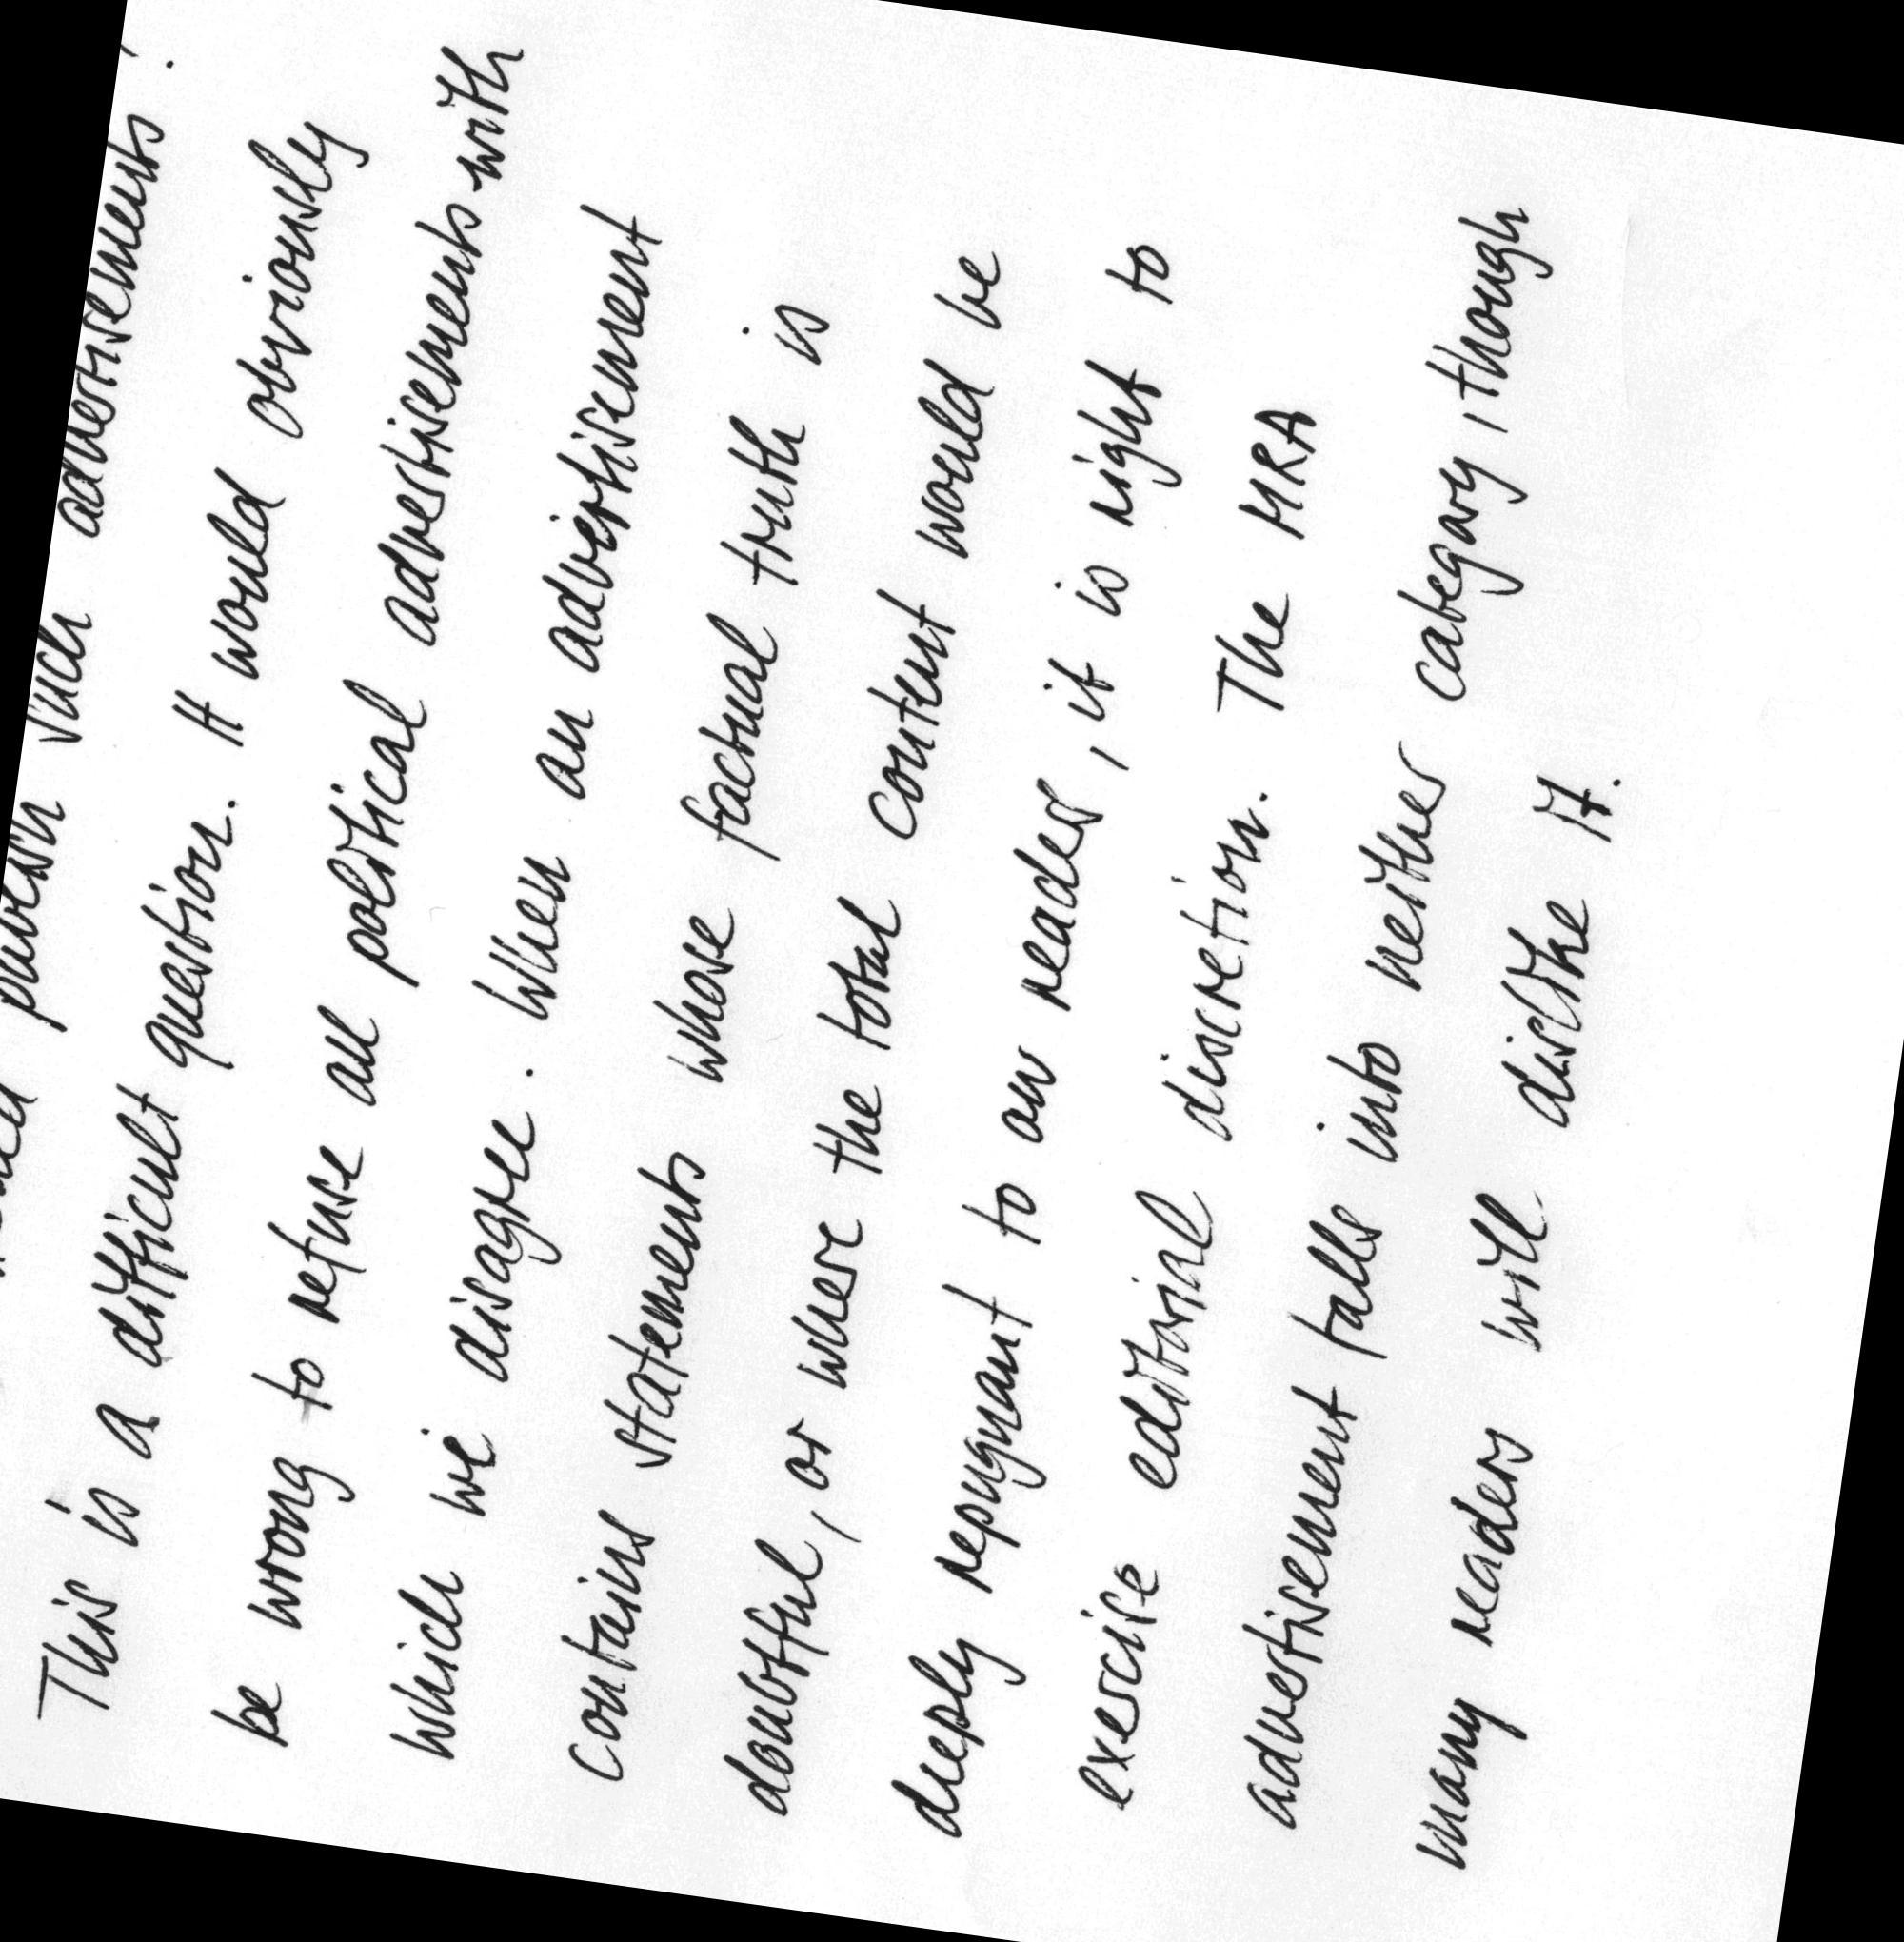 publish such advertisements?
This is a difficult question. It would obviously
be wrong to refuse all political advertisements with
which we disagree. When an advertisement
contains statements whose factual truth is
doubtful, or where the total content would be
deeply repugnant to our reader, it is right to
exercise editorial discretion. The MRA
advertisement falls into neither category, though
many readers will dislike it.